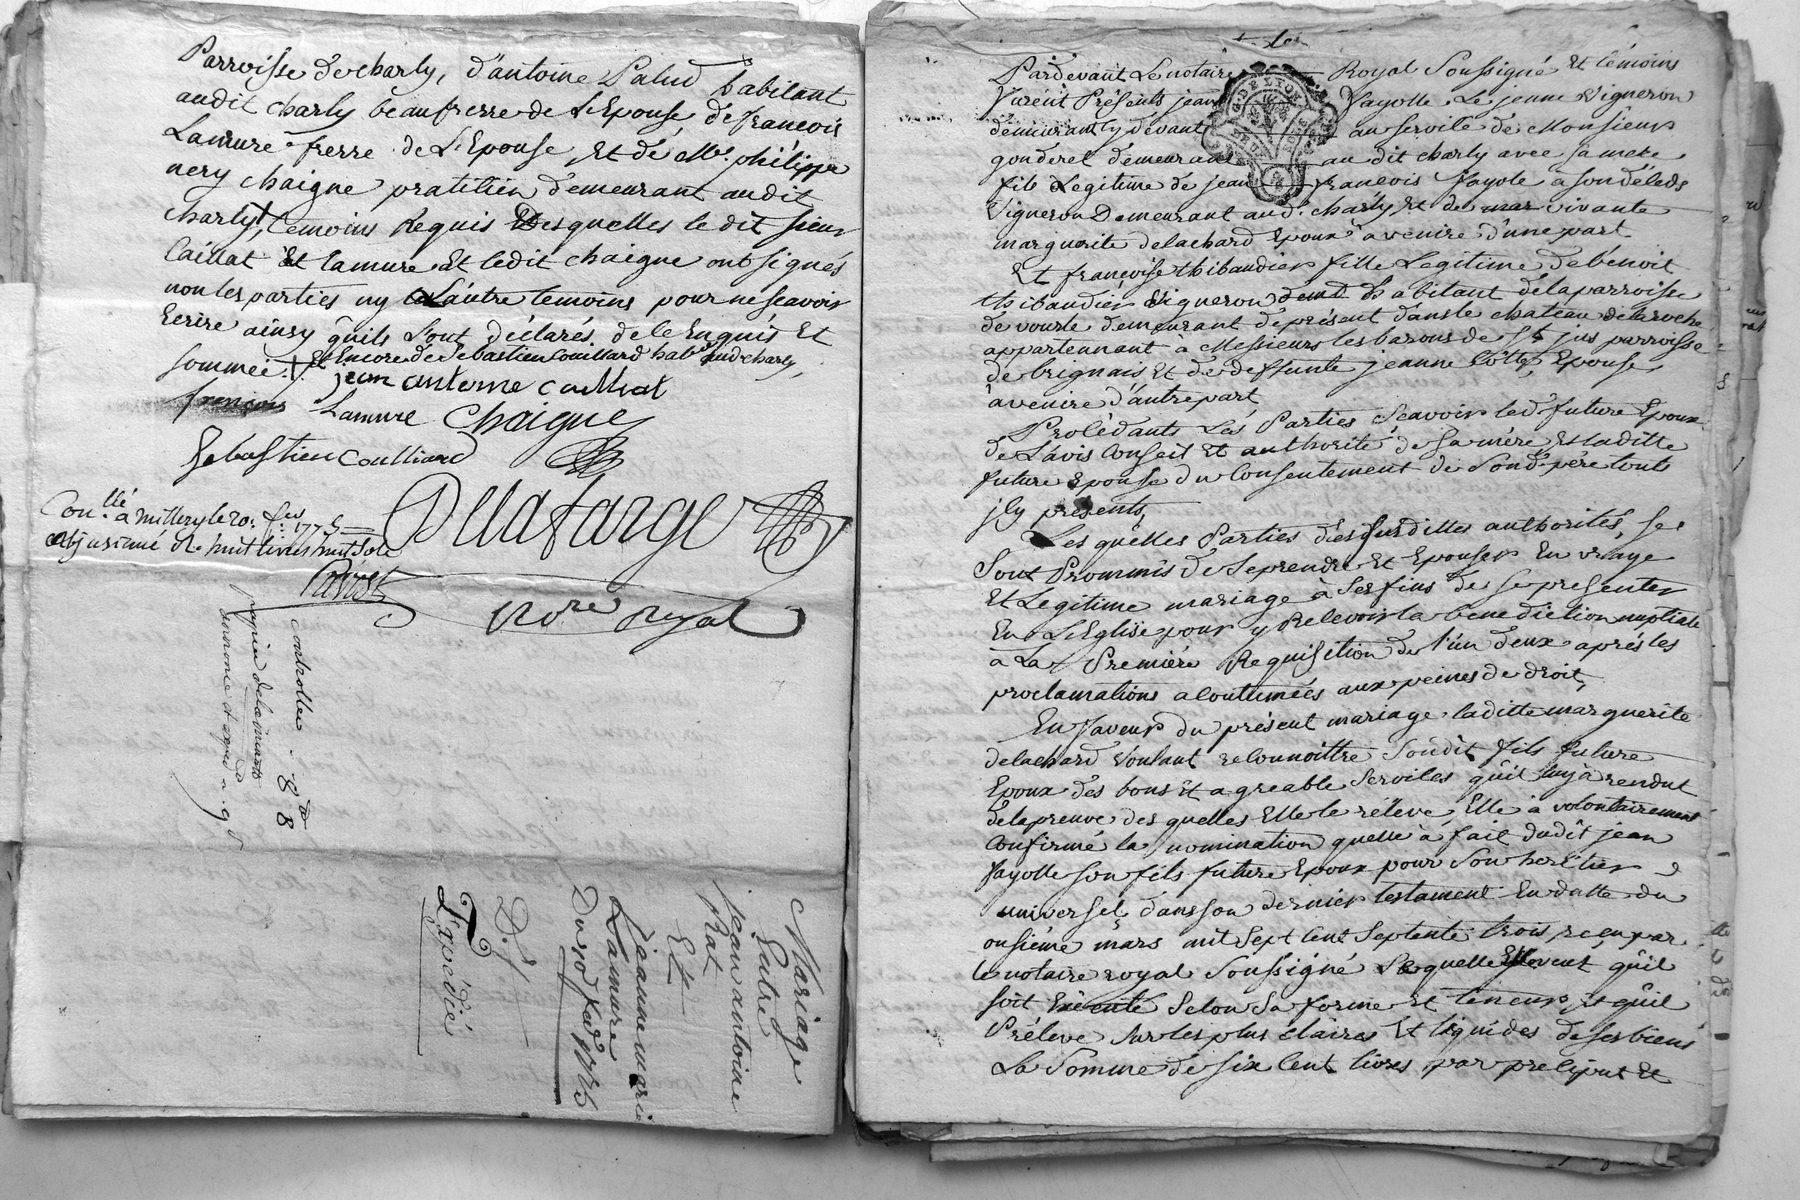 Parroisse de charly, d'antoine Palud habitant
audit charly beaufrerre de L'Epouse de françois
Lamure frerre de L'Epouse, Et dé Mre. philippe
nery chaigne praticien demeurant audit
charly† temoins Requis Desquelles le dit sieur
Caillat Et Lamure Et ledit chaigne ont signés
non les parties ny L'autre temoins pour ne scavoir
Ecrire ainsy quils Sont Déclarés de ce Enquis Et
sommée. † Et Encore de Sebastien Couillard habt audt charly,
jean antoine
françois Lamure Chaigne
Sebastien Coulliard
Con.llé à millery le 20e. 1775
huit livres huit Sols
Dellafarge
Nore royal
controlle 8 8
papier
Mariage
Entre
jean antoine
Rat
Et
jeanne marie
Lamure
Du
D.f
Expédié
Pardevant Le notaire Royal Soussigné Et témoins
Furent Présents jean Fayolle Le jeune Vigneron
demeurant cy devant au service de Monsieur
gonderet demeurant au dit charly avec sa mere
fils Legitime de jean françois fayole à son déceds
Vigneron Demeurant audt. charly, Et de vivante
marguerite delachard Epoux à venire d'une part
Et françoise thibaudier fille Legitime de benoit
thibaudier Vigneron habitant de la parroisse
de vourle demeurant de présent dans le chateau de la roche
appartennant à Messieurs les barons de St. jus parroisse
de brignais Et de deffunte jeanne Epouse
à venire d'autre part
Procédants Les Parties Scavoir led. future Epoux
de L'avis Conseil Et authorité de Sa mére Et laditte
future Epouse du Consentement de Sond. pére touts
jcy présents,
Les quélles Parties dés Susdittes authorités, se
Sont Prommis de Se prendre Et Epouser En vraye
Et Legitime mariage à Ses fins de Se présenter
En L'Eglise pour y Recevoir la bénédiction nuptiale
à La Premiére Requisition de l'un deux aprés les
proclamations acoutumées aux peines de droit,
En Faveur du présent mariage laditte marguerite
delachard Voulant reconnoittre Sondit fils future
Epoux dés bons Et agreable Services qu'il luy à rendut
de la preuve des quelles Elle le réleve, Elle à volontairement
Confirmé la nomination quelle à fait dudit jean
fayolle son fils future Epoux pour Son heritier
universel dans son dernier testament En datte du
onsiéme mars mil Sept Cent Septente trois, reçu par
le notaire royal Soussigné Lequelle Elle veut qu'il
soit Exécuté Selon Sa forme Et teneur, Et qu'il
Préleve Sur les plus claires Et liquides de Ses biens
La Somme de Six Cent livres, par preciput Et